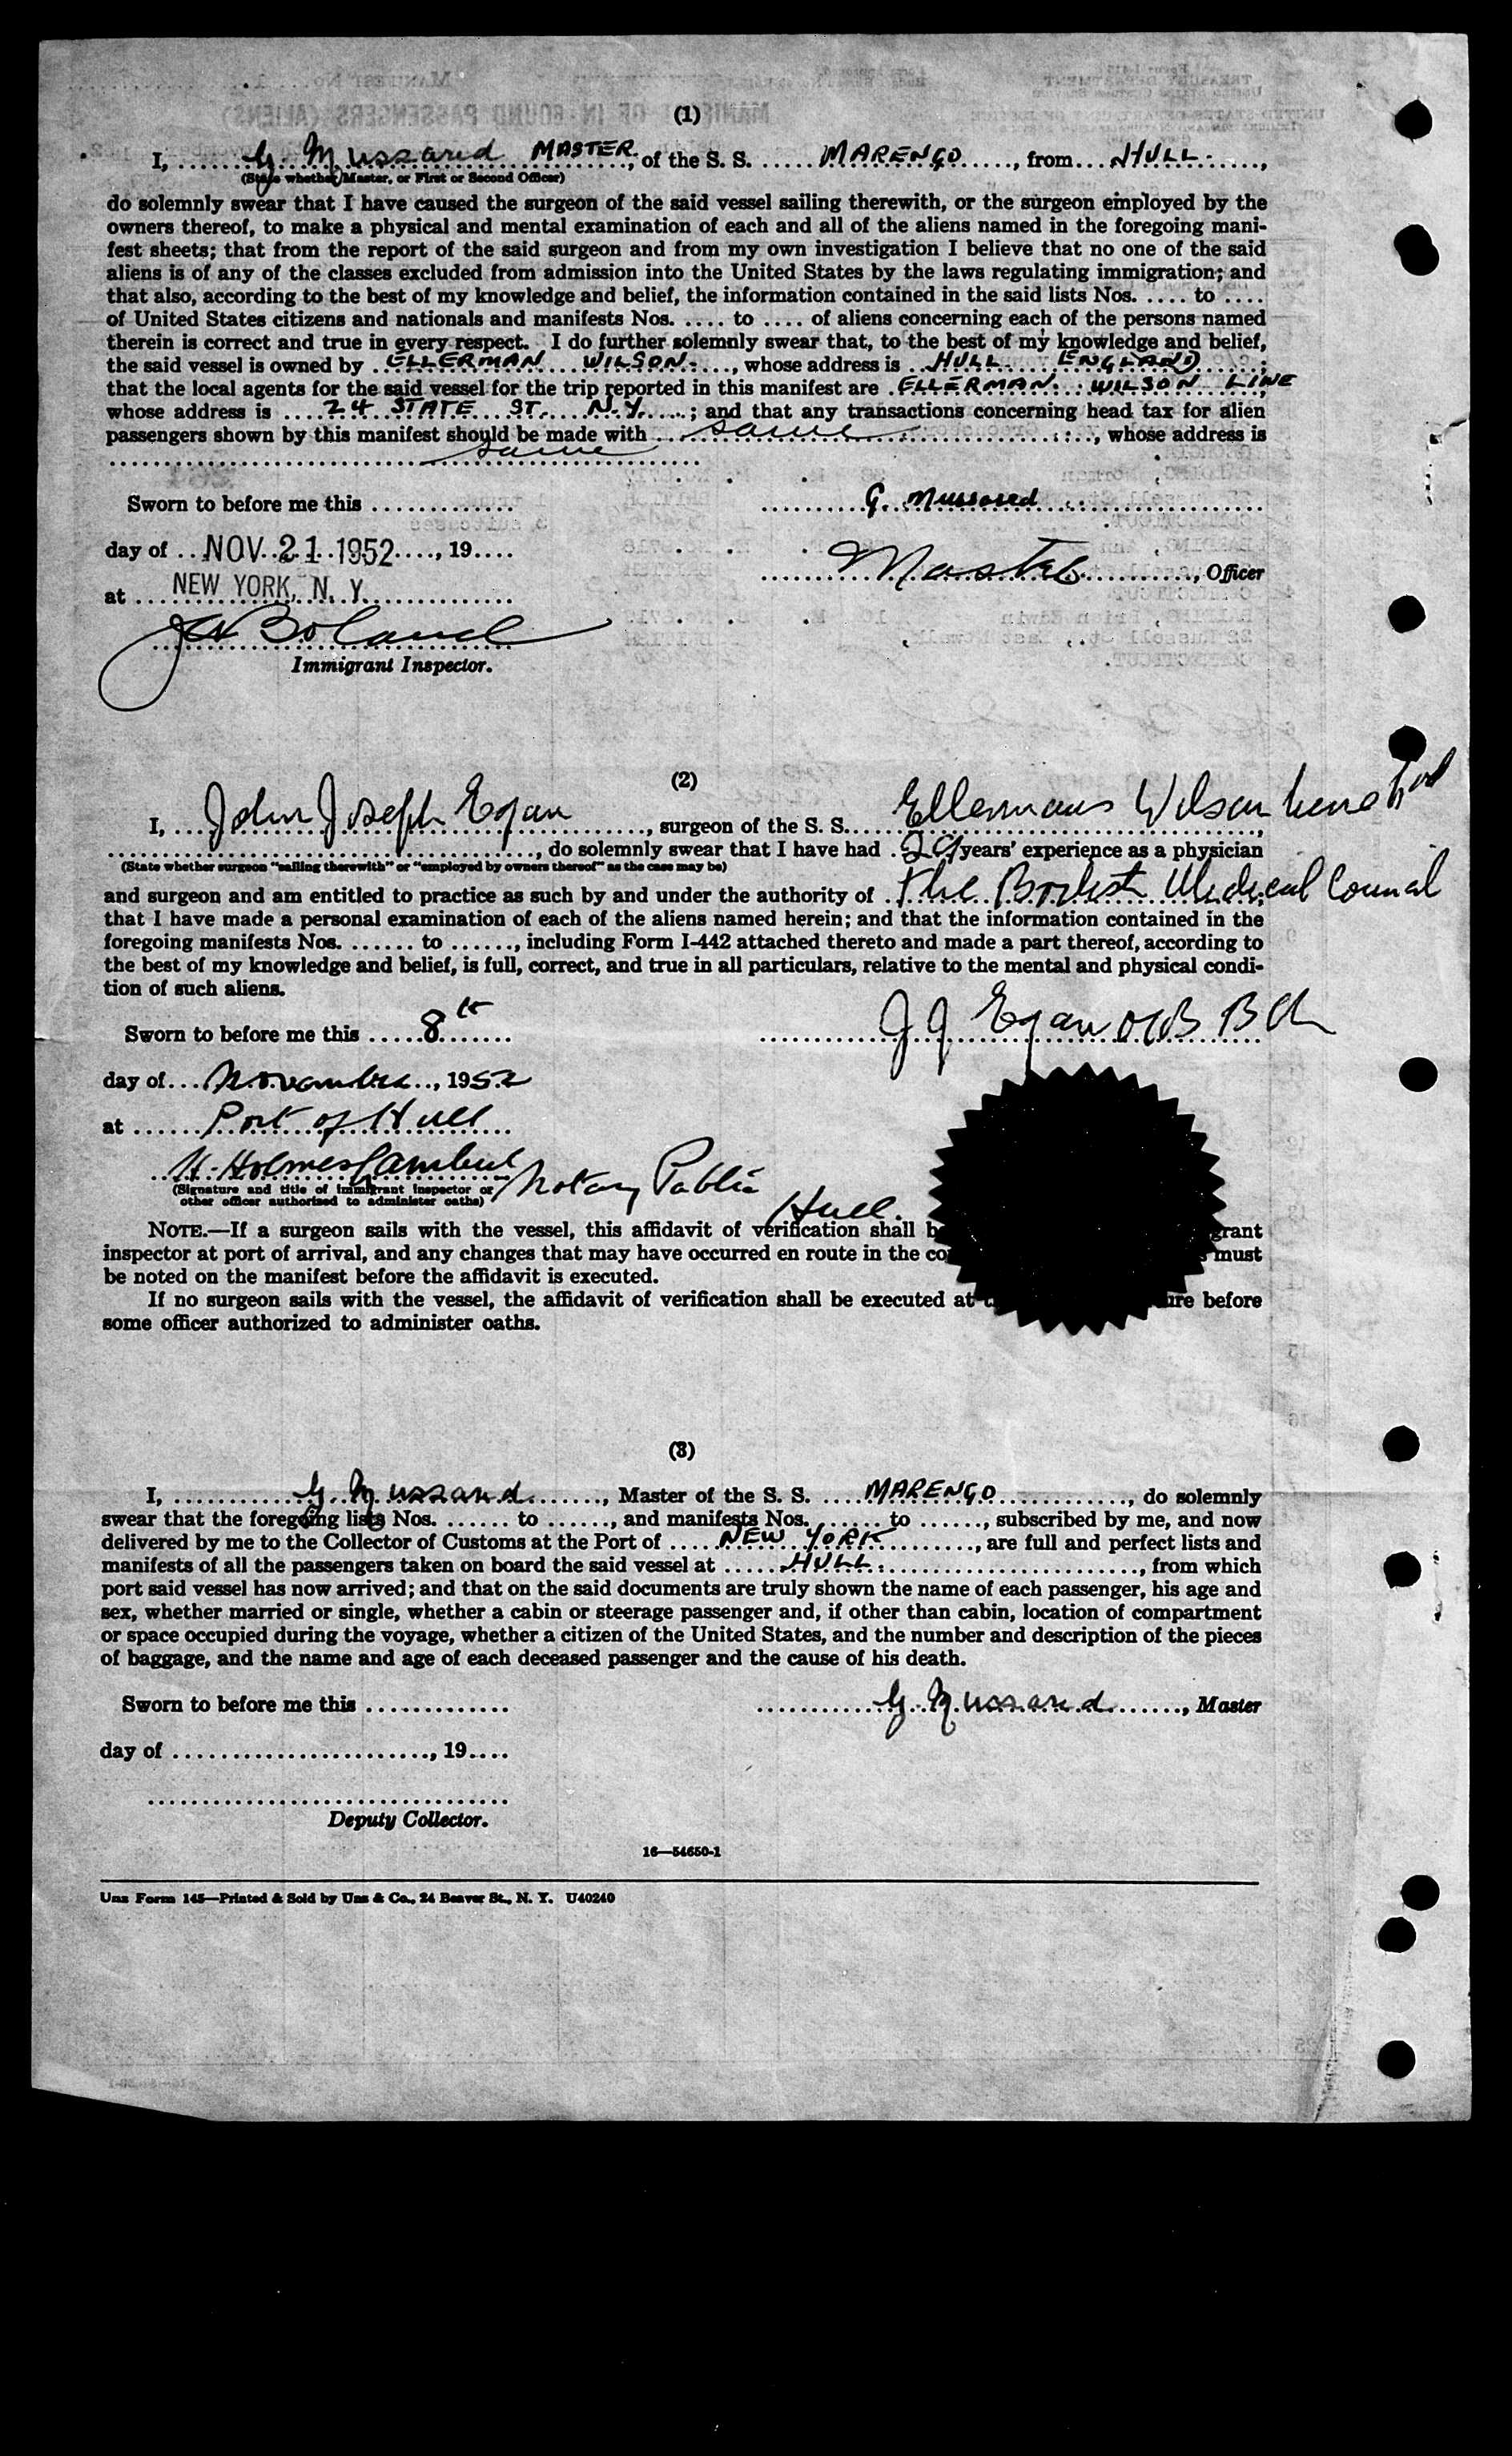 (1)
I, G. Mussared MASTER, of the S. S. MARENGO, from HULL,
(State whether Master, or First or Second Officer)
do solemnly swear that I have caused the surgeon of the said vessel sailing therewith, or the surgeon employed by the
owners thereof, to make a physical and mental examination of each and all of the aliens named in the foregoing mani-
fest sheets; that from the report of the said surgeon and from my own investigation I believe that no one of the said
aliens is of any of the classes excluded from admission into the United States by the laws regulating immigration; and
that also, according to the best of my knowledge and belief, the information contained in the said lists Nos. .... to ....
of United States citizens and nationals and manifests Nos. .... to .... of aliens concerning each of the persons named
therein is correct and true in every respect. I do further solemnly swear that, to the best of my knowledge and belief,
the said vessel is owned by ELLERMAN WILSON, whose address is HULL ENGLAND;
that the local agents for the said vessel for the trip reported in this manifest are ELLERMAN WILSON LINE
whose address is 24 STATE ST. N.Y.; and that any transactions concerning head tax for alien
passengers shown by this manifest should be made with same, whose address is
same
Sworn to before me this ............. G. Mussared
day of NOV 21 1952, 19.... Master, Officer
at NEW YORK, N. Y.
Boland
Immigrant Inspector.
(2)
I, John Joseph Egan, surgeon of the S. S. Ellermans Wilson Line
, do solemnly swear that I have had 29 years' experience as a physician
(State whether surgeon "sailing therewith" or "employed by owners thereof" as the case may be)
and surgeon and am entitled to practice as such by and under the authority of the British Medical Council
that I have made a personal examination of each of the aliens named herein; and that the information contained in the
foregoing manifests Nos. ...... to ......, including Form I-442 attached thereto and made a part thereof, according to
the best of my knowledge and belief, is full, correct, and true in all particulars, relative to the mental and physical condi-
tion of such aliens.
Sworn to before me this 8th J J Egan MB BCh
day of November, 1952
at Port of Hull
H. Holmes Notary Public
(Signature and title of immigrant inspector or
other officer authorized to administer oaths)
Hull.
NOTE.—If a surgeon sails with the vessel, this affidavit of verification shall b grant
inspector at port of arrival, and any changes that may have occurred en route in the co must
be noted on the manifest before the affidavit is executed.
If no surgeon sails with the vessel, the affidavit of verification shall be executed at ure before
some officer authorized to administer oaths.
(3)
I, G. Mussared, Master of the S. S. MARENGO, do solemnly
swear that the foregoing lists Nos. ...... to ......, and manifests Nos. ...... to ......, subscribed by me, and now
delivered by me to the Collector of Customs at the Port of NEW YORK, are full and perfect lists and
manifests of all the passengers taken on board the said vessel at HULL, from which
port said vessel has now arrived; and that on the said documents are truly shown the name of each passenger, his age and
sex, whether married or single, whether a cabin or steerage passenger and, if other than cabin, location of compartment
or space occupied during the voyage, whether a citizen of the United States, and the number and description of the pieces
of baggage, and the name and age of each deceased passenger and the cause of his death.
Sworn to before me this ............. G. Mussared, Master
day of ........................, 19....
Deputy Collector.
16—54650-1
Unz Form 145—Printed & Sold by Unz & Co., 24 Beaver St., N. Y. U40240